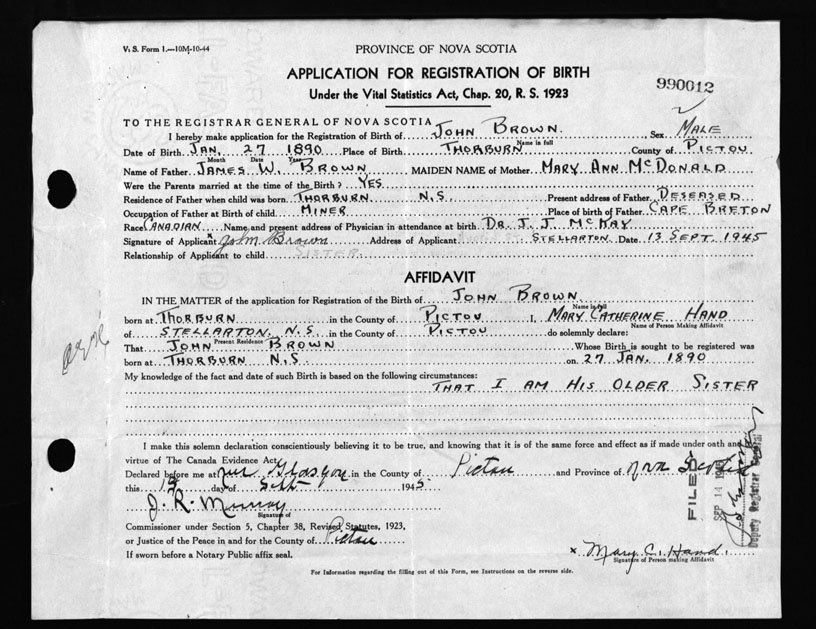 V. S. Form 1.—10M-10-44
PROVINCE OF NOVA SCOTIA
APPLICATION FOR REGISTRATION OF BIRTH
990012
Under the Vital Statistics Act, Chap. 20, R. S. 1923
TO THE REGISTRAR GENERAL OF NOVA SCOTIA
I hereby make application for the Registration of Birth of JOHN BROWN. Sex MALE
Name in full
Date of Birth JAN. 27 1890 Place of Birth THORBURN County of PICTOU
Month Date Year
Name of Father JAMES W. BROWN MAIDEN NAME of Mother MARY ANN McDONALD
Were the Parents married at the time of the Birth? YES
Residence of Father when child was born THORBURN N.S. Present address of Father DESEASED
Occupation of Father at Birth of child MINER Place of birth of Father CAPE BRETON
Race CANADIAN Name and present address of Physician in attendance at birth DR. J. J. McKAY
Signature of Applicant x John Brown Address of Applicant STELLARTON Date 13 SEPT. 1945
Relationship of Applicant to child SISTER
AFFIDAVIT
IN THE MATTER of the application for Registration of the Birth of JOHN BROWN
Name in full
born at THORBURN in the County of PICTOU I, MARY CATHERINE HAND
Name of Person Making Affidavit
of STELLARTON, N.S. in the County of PICTOU do solemnly declare:
Present Residence
That JOHN BROWN Whose Birth is sought to be registered was
born at THORBURN N.S on 27 JAN. 1890
My knowledge of the fact and date of such Birth is based on the following circumstances:
THAT I AM HIS OLDER SISTER
I make this solemn declaration conscientiously believing it to be true, and knowing that it is of the same force and effect as if made under oath and
virtue of The Canada Evidence Act.
Declared before me at New Glasgow in the County of Pictou and Province of Nova Scotia
this 13 day of Sept 1945
J. R. Murray
Signature of
Commissioner under Section 5, Chapter 38, Revised Statutes, 1923,
or Justice of the Peace in and for the County of Pictou
If sworn before a Notary Public affix seal.
x Mary C. Hand
Signature of Person making Affidavit
For Information regarding the filling out of this Form, see Instructions on the reverse side.
FILED
SEP 14 1945
Deputy Registrar General